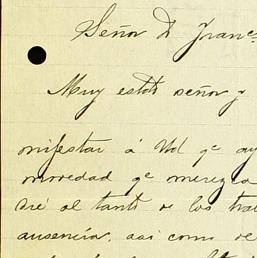 Señor D Franc
Muy estdo señor y
nifestar á Ud qe ay
movedad qe merezca
ré al tanto de los tra
ausencia, asi como de